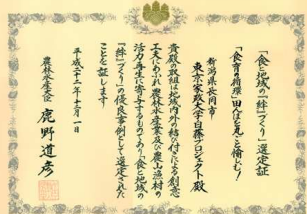 「食と地域の『絆』づくり」選定証
「食育の循環」田んぼを見て備しむ!
新潟県長岡市
東京家政大学白藤プロジェクト殿
貴殿の取組は地域内外の結び付きによる創意
工夫にあふれ農林水産業及び農山漁村の
活力再生に寄与するものであり「食と地域の
『絆』づくり」の優良事例として選定された
ことを証します
平成二十二年十二月一日
農林水産大臣 鹿野道彦